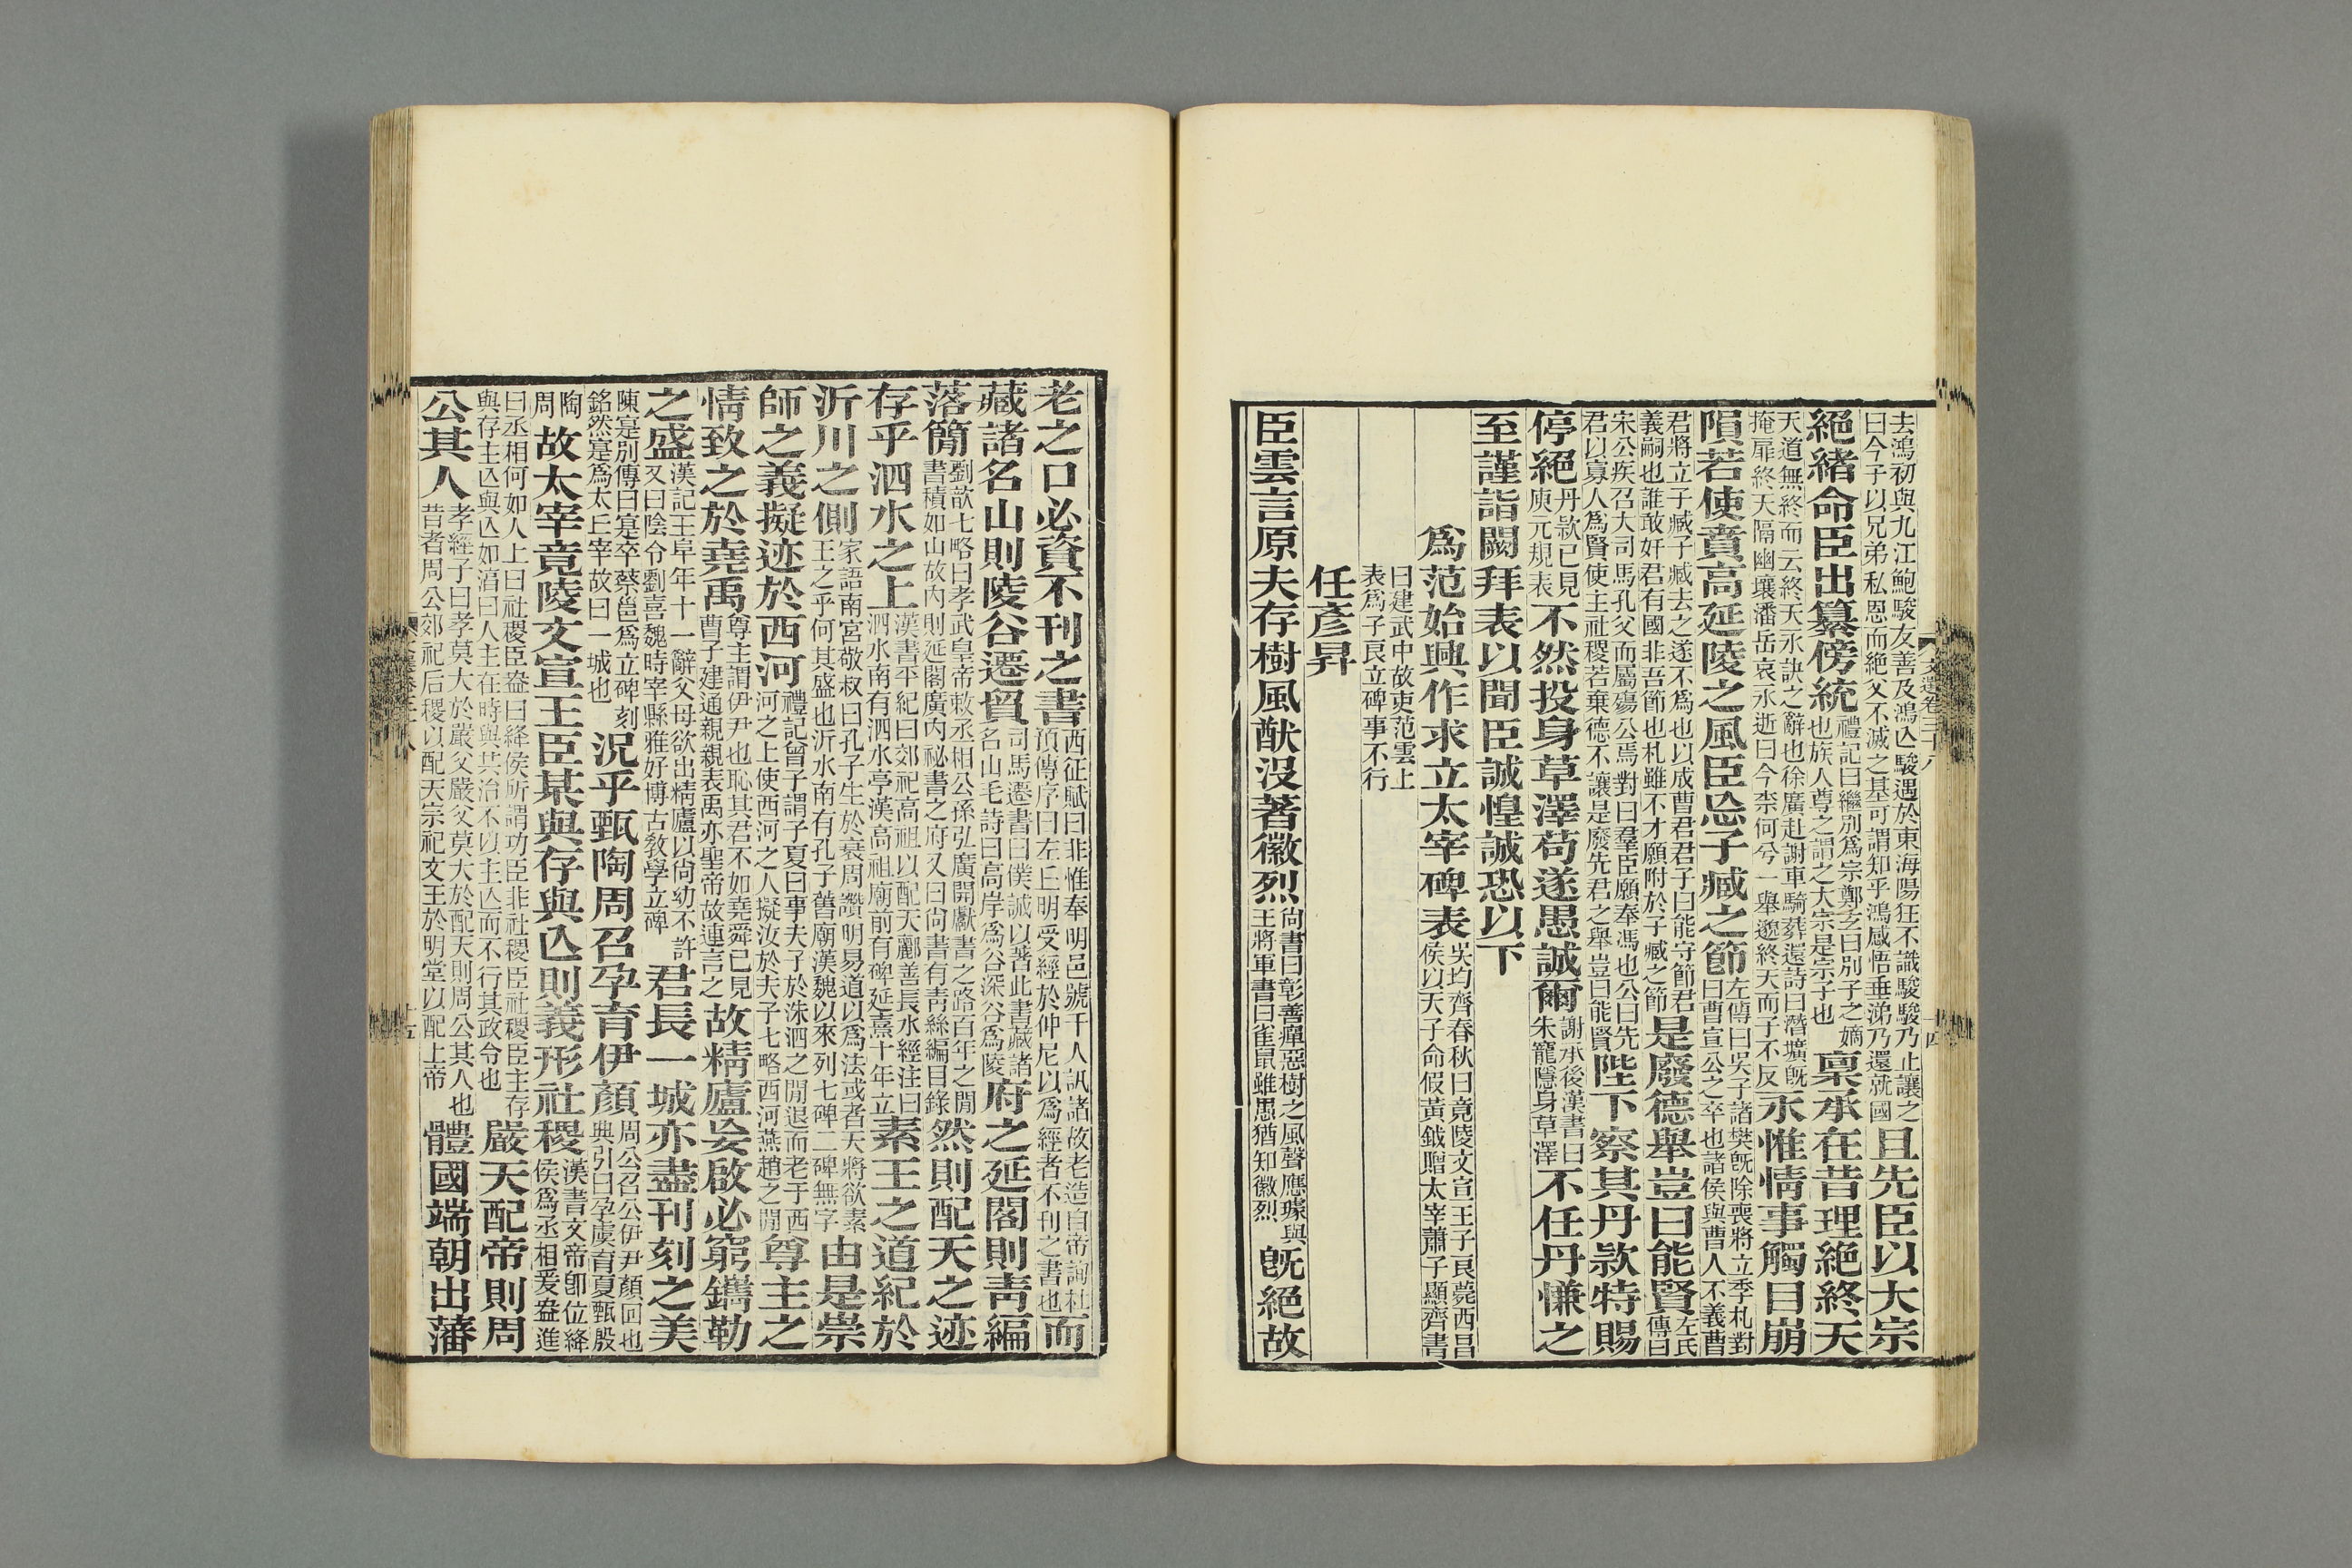 去鴻初與九江鮑駿友善及鴻亾駿遇於東海陽狂不識駿駿乃止讓之
曰今子以兄弟私恩而絕父不滅之基可謂知乎鴻感悟垂涕乃還就國
且先臣以大宗
絕緒命臣出纂傍統
禮記曰繼別爲宗鄭玄曰別子之嫡
也族人尊之謂之大宗是宗子也
稟承在昔理絕終天
天道無終而云終天永訣之辭也徐廣赴謝車騎葬還詩曰潛壙旣
掩扉終天隔幽壤潘岳哀永逝曰今柰何兮一舉邈終天而子不反
永惟情事觸目崩
隕若使賁高延陵之風臣忘子臧之節
左傳曰吳子諸樊旣除喪將立季札對
曰曹宣公之卒也諸侯與曹人不義曹
君將立子臧子臧去之遂不爲也以成曹君君子曰能守節君
義嗣也誰敢奸君有國非吾節也札雖不才願附於子臧之節
是廢德舉豈曰能賢
左氏
傳曰
宋公疾召大司馬孔父而屬殤公焉對曰羣臣願奉馮也公曰先
君以寡人爲賢使主社稷若棄德不讓是廢先君之舉豈曰能賢
陛下察其丹款特賜
停絕
丹款已見
庾元規表
不然投身草澤苟遂愚誠爾
謝承後漢書曰
朱寵隱身草澤
不任丹慊之
至謹詣闕拜表以聞臣誠惶誠恐以下
爲范始興作求立太宰碑表
吳均齊春秋曰竟陵文宣王子良薨西昌
侯以天子命假黃鉞贈太宰蕭子顯齊書
曰建武中故吏范雲上
表爲子良立碑事不行
任彥昇
臣雲言原夫存樹風猷没著徽烈
尚書曰彰善癉惡樹之風聲應璩與
王將軍書曰雀鼠雖愚猶知徽烈
旣絕故
老之口必資不刊之書
西征賦曰非惟奉明邑號千人訊諸故老造自帝詢杜
預傳序曰左丘明受經於仲尼以爲經者不刊之書也
而
藏諸名山則陵谷遷貿
司馬遷書曰僕誠以著此書藏諸
名山毛詩曰高岸爲谷深谷爲陵
府之延閣則青編
落簡
劉歆七略曰孝武皇帝敕丞相公孫弘廣開獻書之路百年之閒
書積如山故内則延閣廣内祕書之府又曰尚書有青絲編目錄
然則配天之迹
存乎泗水之上
漢書平紀曰郊祀高祖以配天酈善長水經注曰
泗水南有泗水亭漢高祖廟前有碑延熹十年立
素王之道紀於
沂川之側
家語南宮敬叔曰孔子生於衰周讚明易道以爲法或者天將欲素
王之乎何其盛也沂水南有孔子舊廟漢魏以來列七碑二碑無字
由是崇
師之義擬迹於西河
禮記曾子謂子夏曰事夫子於洙泗之閒退而老于西
河之上使西河之人擬汝於夫子七略西河燕趙之閒
尊主之
情致之於堯禹
尊主謂伊尹也恥其君不如堯舜已見
曹子建通親親表禹亦聖帝故連言之
故精廬妄啟必窮鐫勒
之盛
漢記王阜年十一辭父母欲出精廬以尚幼不許
又曰陰令劉喜魏時宰縣雅好博古敎學立碑
君長一城亦盡刊刻之美
陳寔別傳曰寔卒蔡邕爲立碑刻
銘然寔爲太丘宰故曰一城也
況乎甄陶周召孕育伊顏
周公召公伊尹顏回也
典引曰孕虞育夏甄殷
陶
周
故太宰竟陵文宣王臣某與存與亾則義形社稷
漢書文帝卽位絳
侯爲丞相爰盎進
曰丞相何如人上曰社稷臣盎曰絳侯所謂功臣非社稷臣社稷臣主存
與存主亾與亾如淳曰人主在時與共治不以主亾而不行其政令也
嚴天配帝則周
公其人
孝經子曰孝莫大於嚴父嚴父莫大於配天則周公其人也
昔者周公郊祀后稷以配天宗祀文王於明堂以配上帝
體國端朝出藩